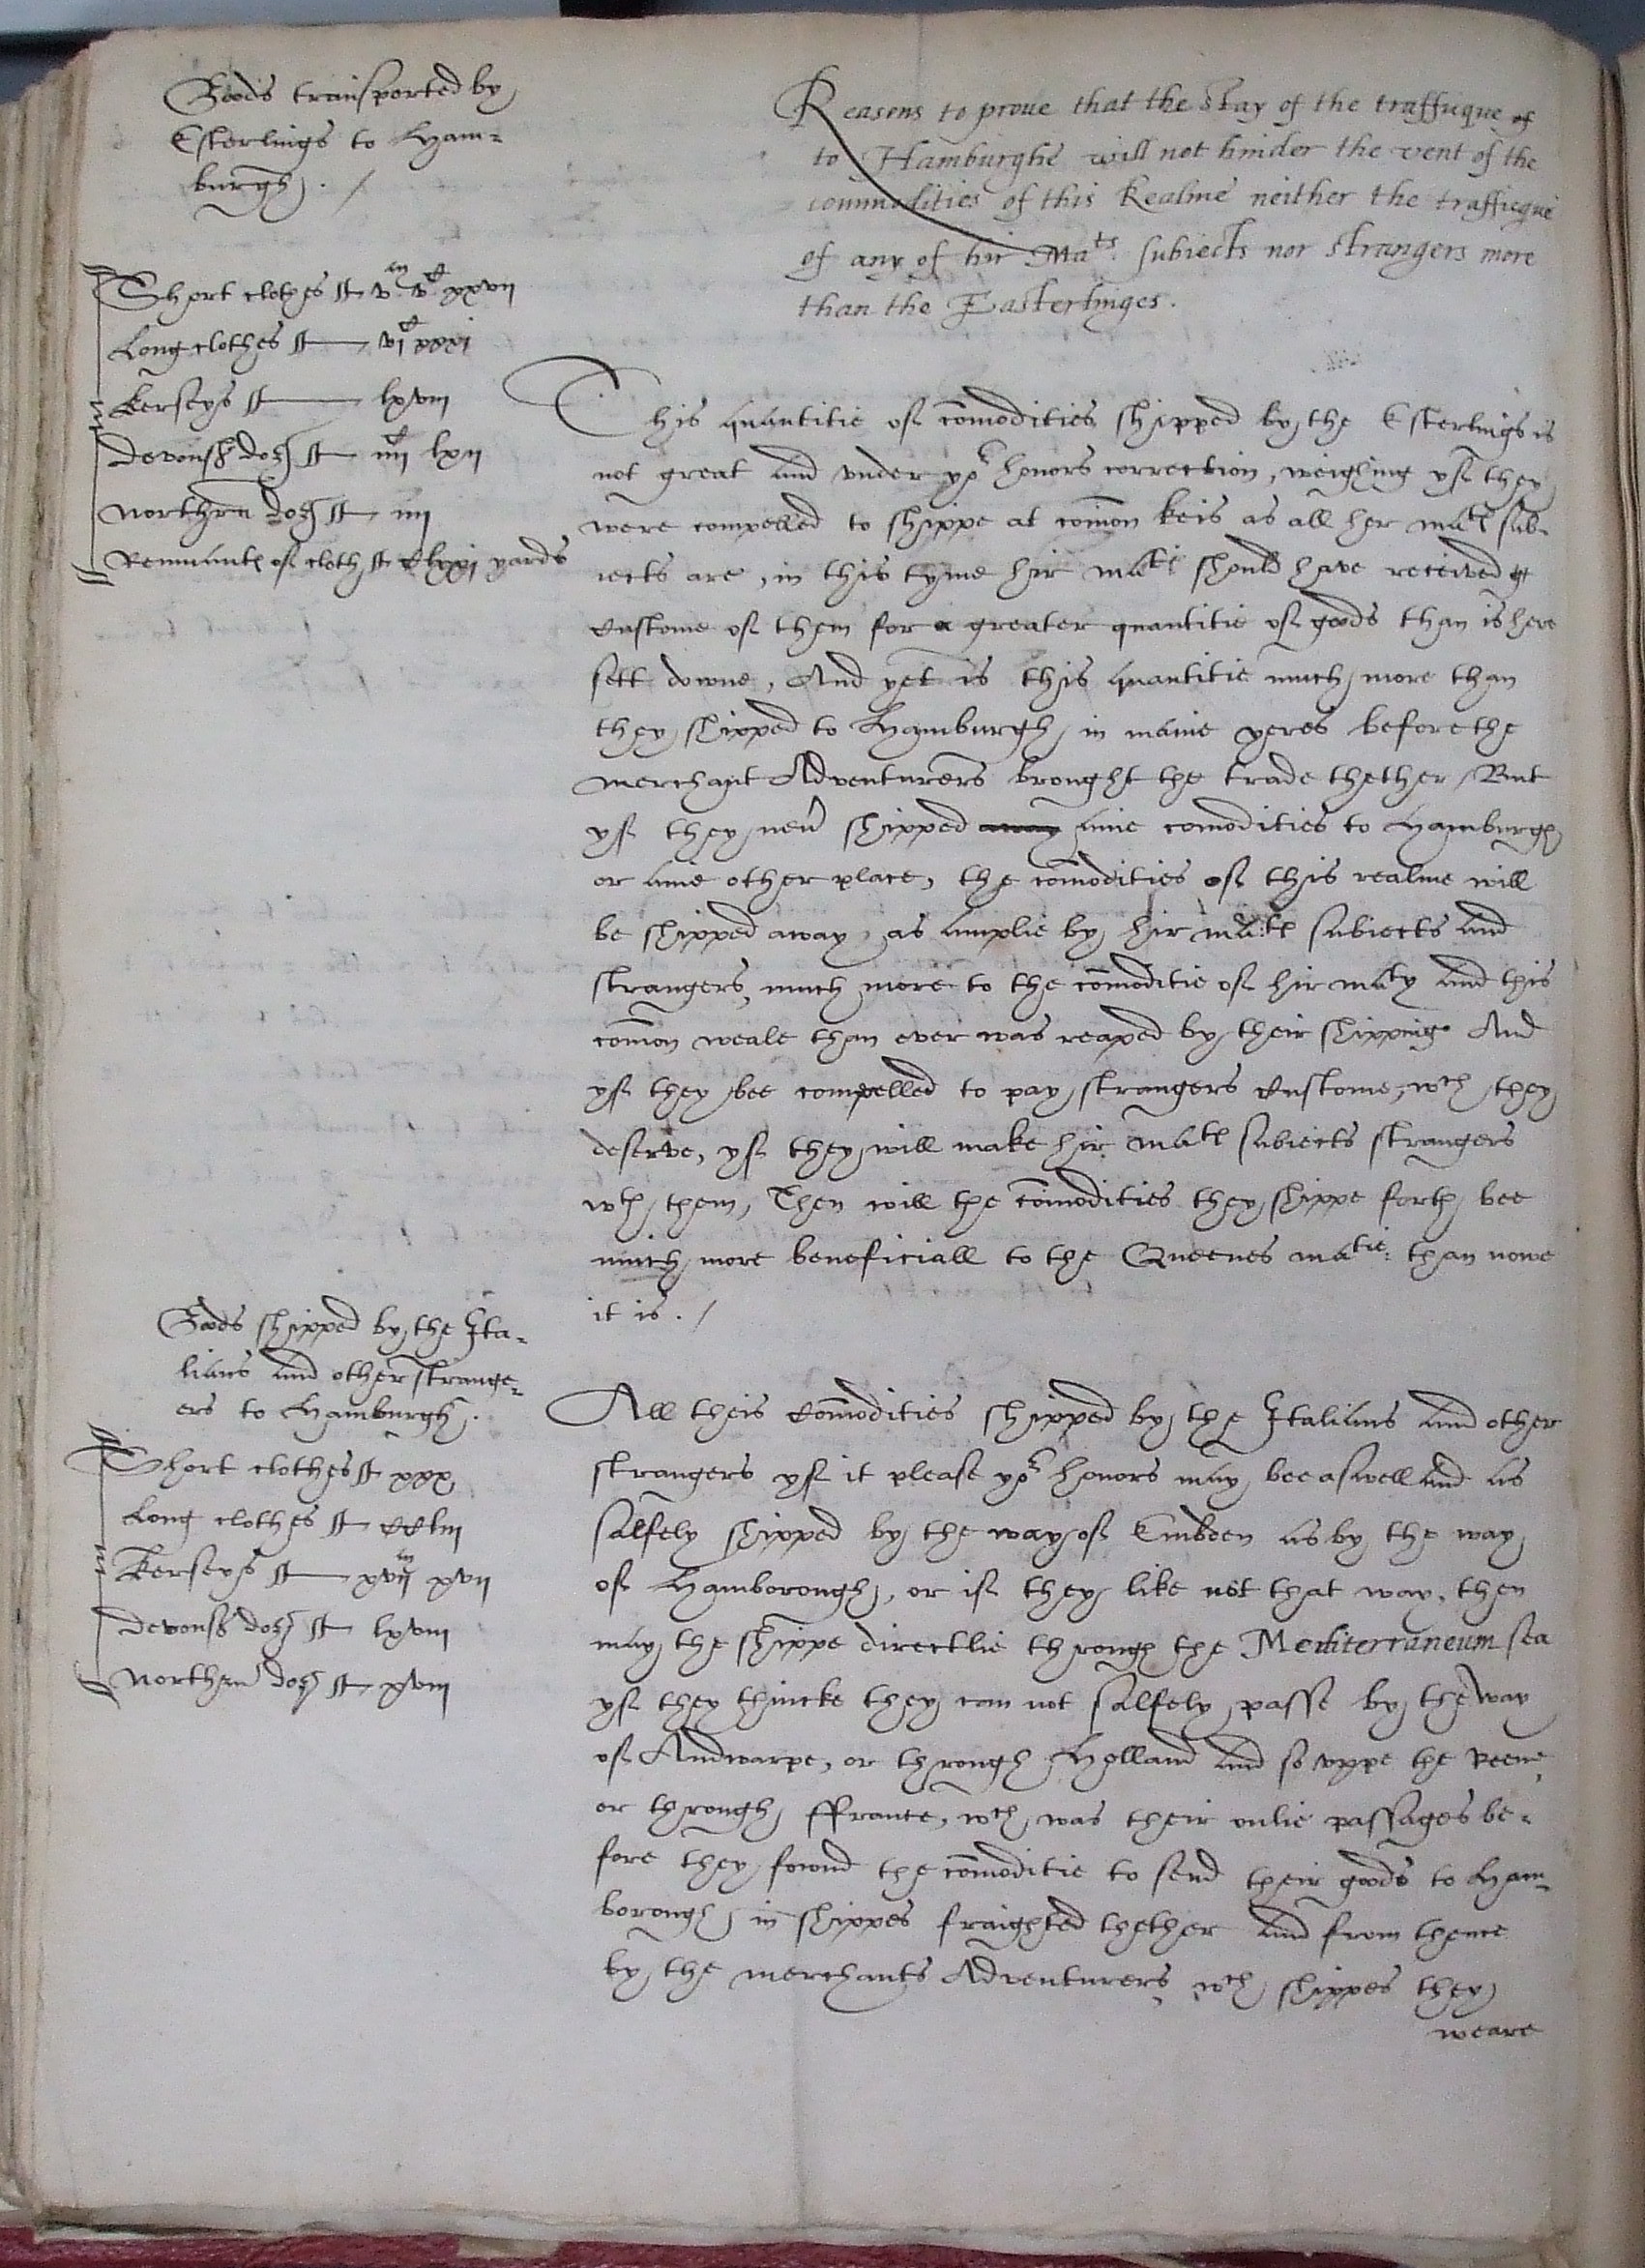 Goods transported by
Esterlings to Ham-
burgh. /
Short clothes it v.m vC xxvii
Long clothes it viC xxxi
Kerseys it lxviii
Devonsh doz it iiiiC lxii
Northrn doz it iiii
Remnants of cloth it Clxxi yards
Reasons to proue that the stay of the traffuque of
to Hamburghe will not hinder the vent of the
commodities of this Realme neither the trafficque
of any of hir Mats. subiects nor strangers more
than the Easterlinges.
This quantitie of comodities shipped by the Esterlings is
not great and vnder yor honors correction, weighing yf they
were compelled to shippe at comon keis as all her mats sub-
iects are, in this tyme hir matie should have received
Custome of them for a greater quantitie of goods than is here
sett downe, And yet is this quantitie much more than
they shipped to Hamburgh in manie yeres before the
merchant Adventurers brought the trade thether, But
yf they neu shipped away anie comodities to Hamburgh
or anie other place, the comodities of this realme will
be shipped away as amplie by hir mats subiects and
strangers, much more to the comoditie of hir maty and this
comon weale than ever was reaped by their shipping. And
yf they bee compelled to pay strangers Custome, wch they
deserve, yf they will make hir mats subiects strangers
wth them, Then will the comodities they shippe forth bee
much more beneficiall to the Queenes matie: than nowe
it is. /
Goods shipped by the Ita-
lians and other strange-
ers to Hamburgh.
Short clothes it xxx
Long clothes it CCliii
Kerseys it xviim xvii
Devonsh doz it lxviii
Northern doz it xviii
All theis Comodities shipped by the Italians and other
strangers yf it please yor honors may bee aswell and as
salfely shipped by the way of Embden as by the way
of Hamborough, or if they like not that way, then
may the shippe directlie through the Mediterraneum sea
yf they thincke they can not salfely passe by the way
of Andwarpe, or through Holland and so vppe the Reene,
or through ffrance, wch was their onlie passages be-
fore they fownd the comoditie to send their goods to Ham-
borough in shippes fraighted thether and from thence
by the merchants Adventurers, wch shippes they
weare